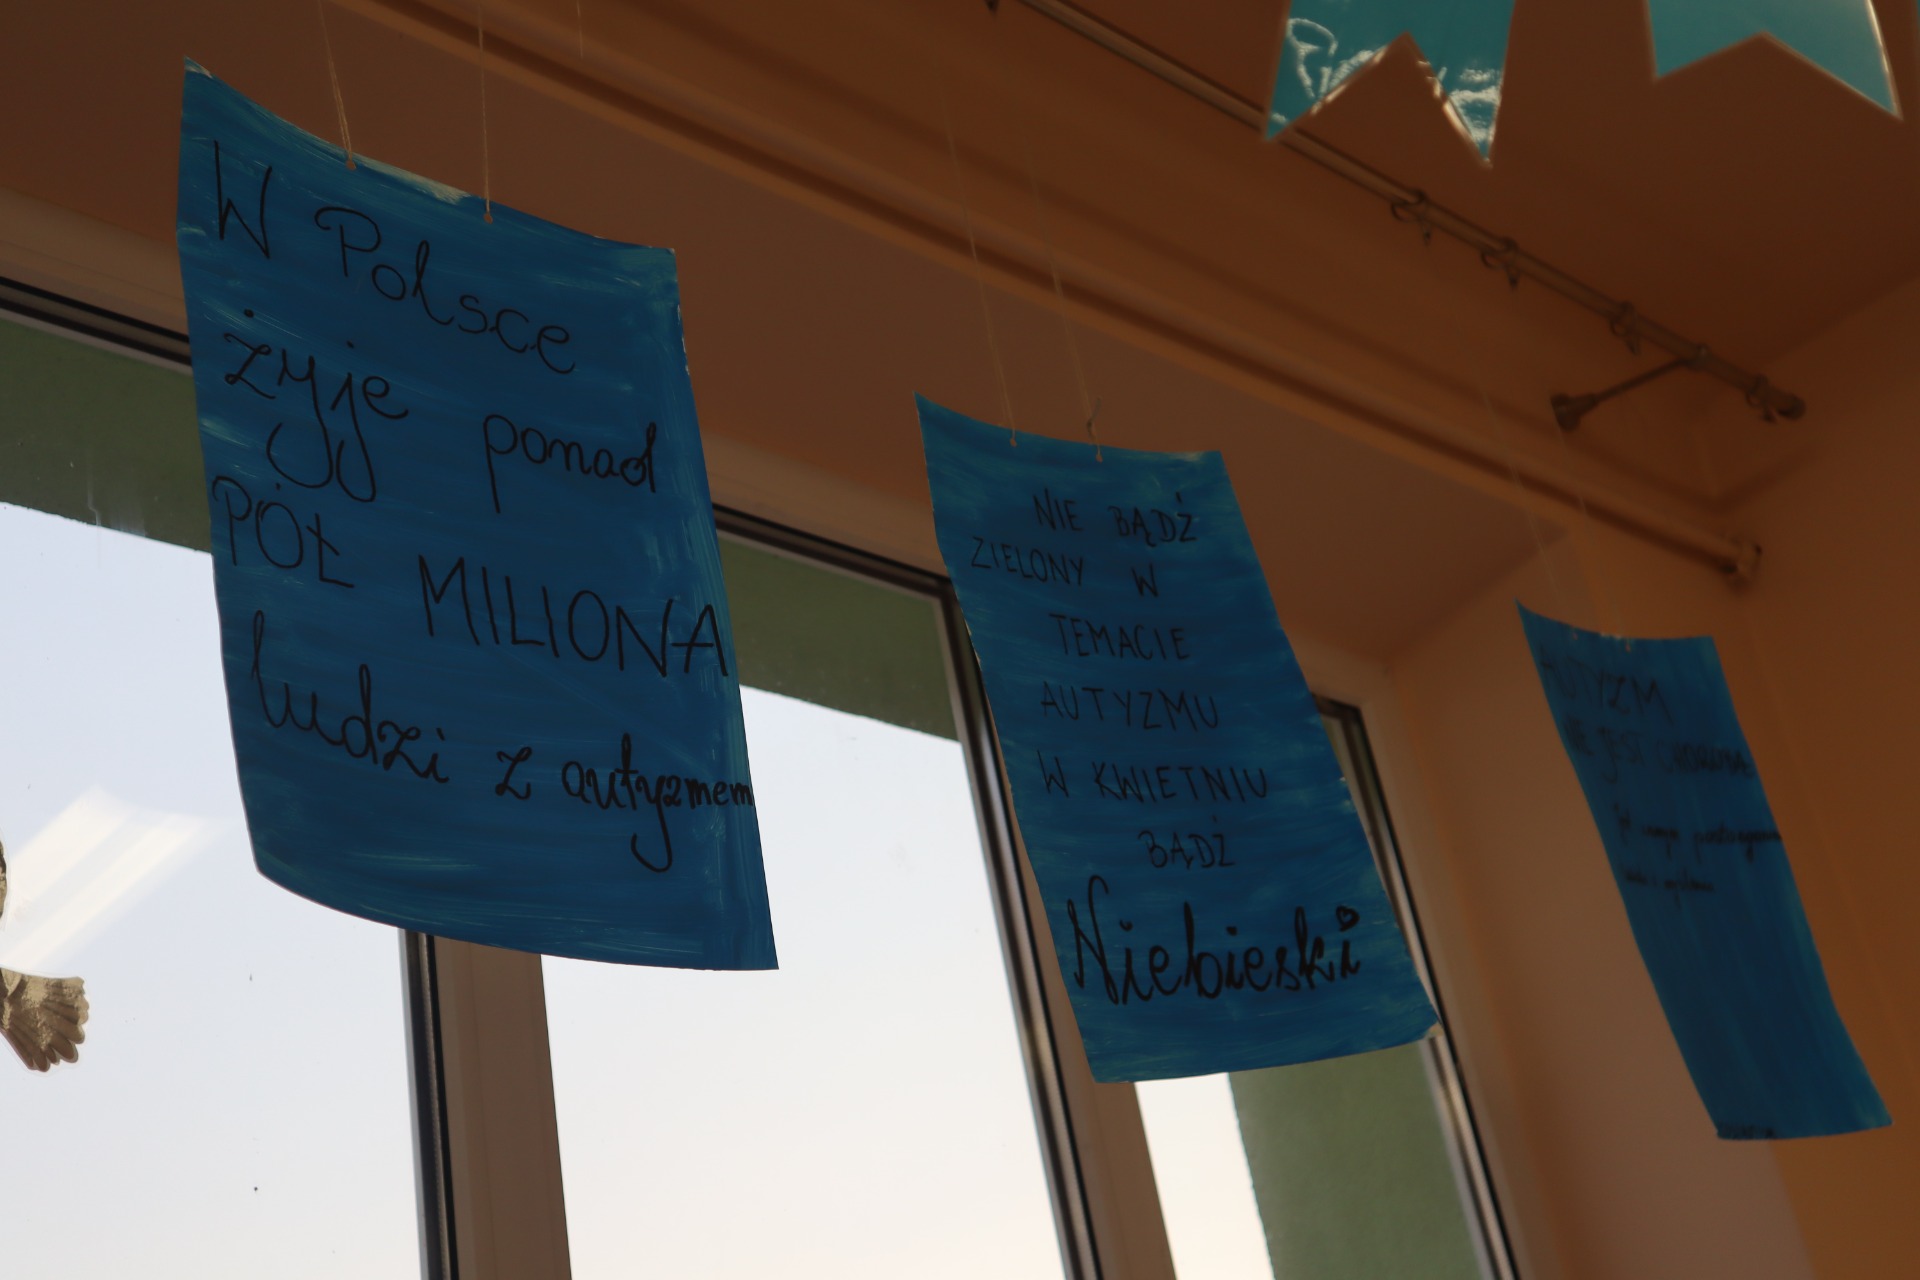 W Polsce
żyje ponad
PÓŁ MILIONA
ludzi z autyzmem
NIE BĄDŹ
ZIELONY W
TEMACIE
AUTYZMU
W KWIETNIU
BĄDŹ
Niebieski
AUTYZM
NIE JEST CHOROBĄ